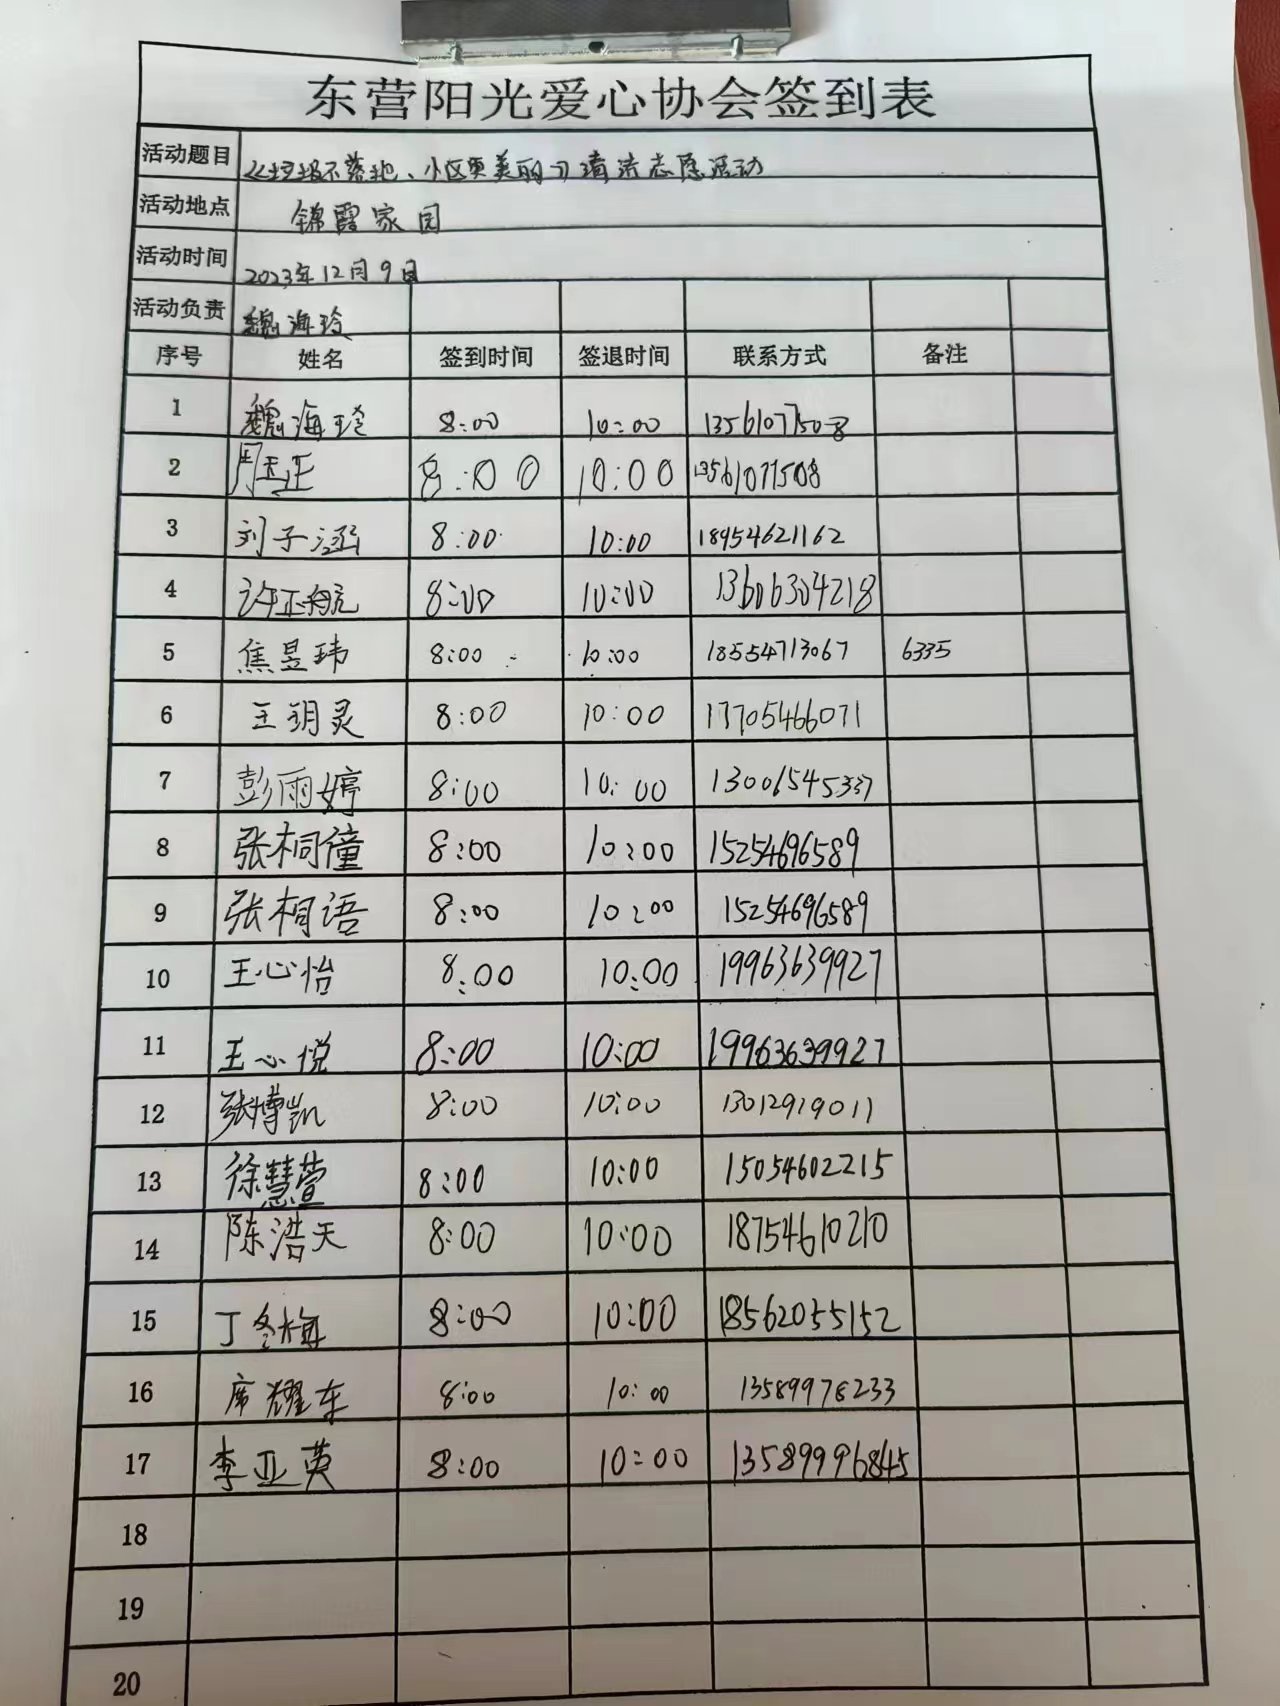 东营阳光爱心协会签到表
活动题目 《垃圾不落地、小区更美丽》清洁志愿活动
活动地点 锦霞家园
活动时间 2023年12月9日
活动负责 魏海玲
序号 姓名 签到时间 签退时间 联系方式 备注
1 魏海玲 8:00 10:00 13561077508
2 周玉正 8:00 10:00 13561077508
3 刘子涵 8:00 10:00 18954621162
4 许正航 8:00 10:00 13606304218
5 焦昱玮 8:00 10:00 18554713067 6335
6 王玥灵 8:00 10:00 17705466071
7 彭雨婷 8:00 10:00 13006545337
8 张桐僮 8:00 10:00 15254696589
9 张桐语 8:00 10:00 15254696589
10 王心怡 8:00 10:00 19963639927
11 王心悦 8:00 10:00 19963639927
12 张博凯 8:00 10:00 13012919011
13 徐慧萱 8:00 10:00 15054602215
14 陈浩天 8:00 10:00 18754610210
15 丁冬梅 8:00 10:00 18562055152
16 席耀东 8:00 10:00 13589978233
17 李亚英 8:00 10:00 13589996845
18
19
20